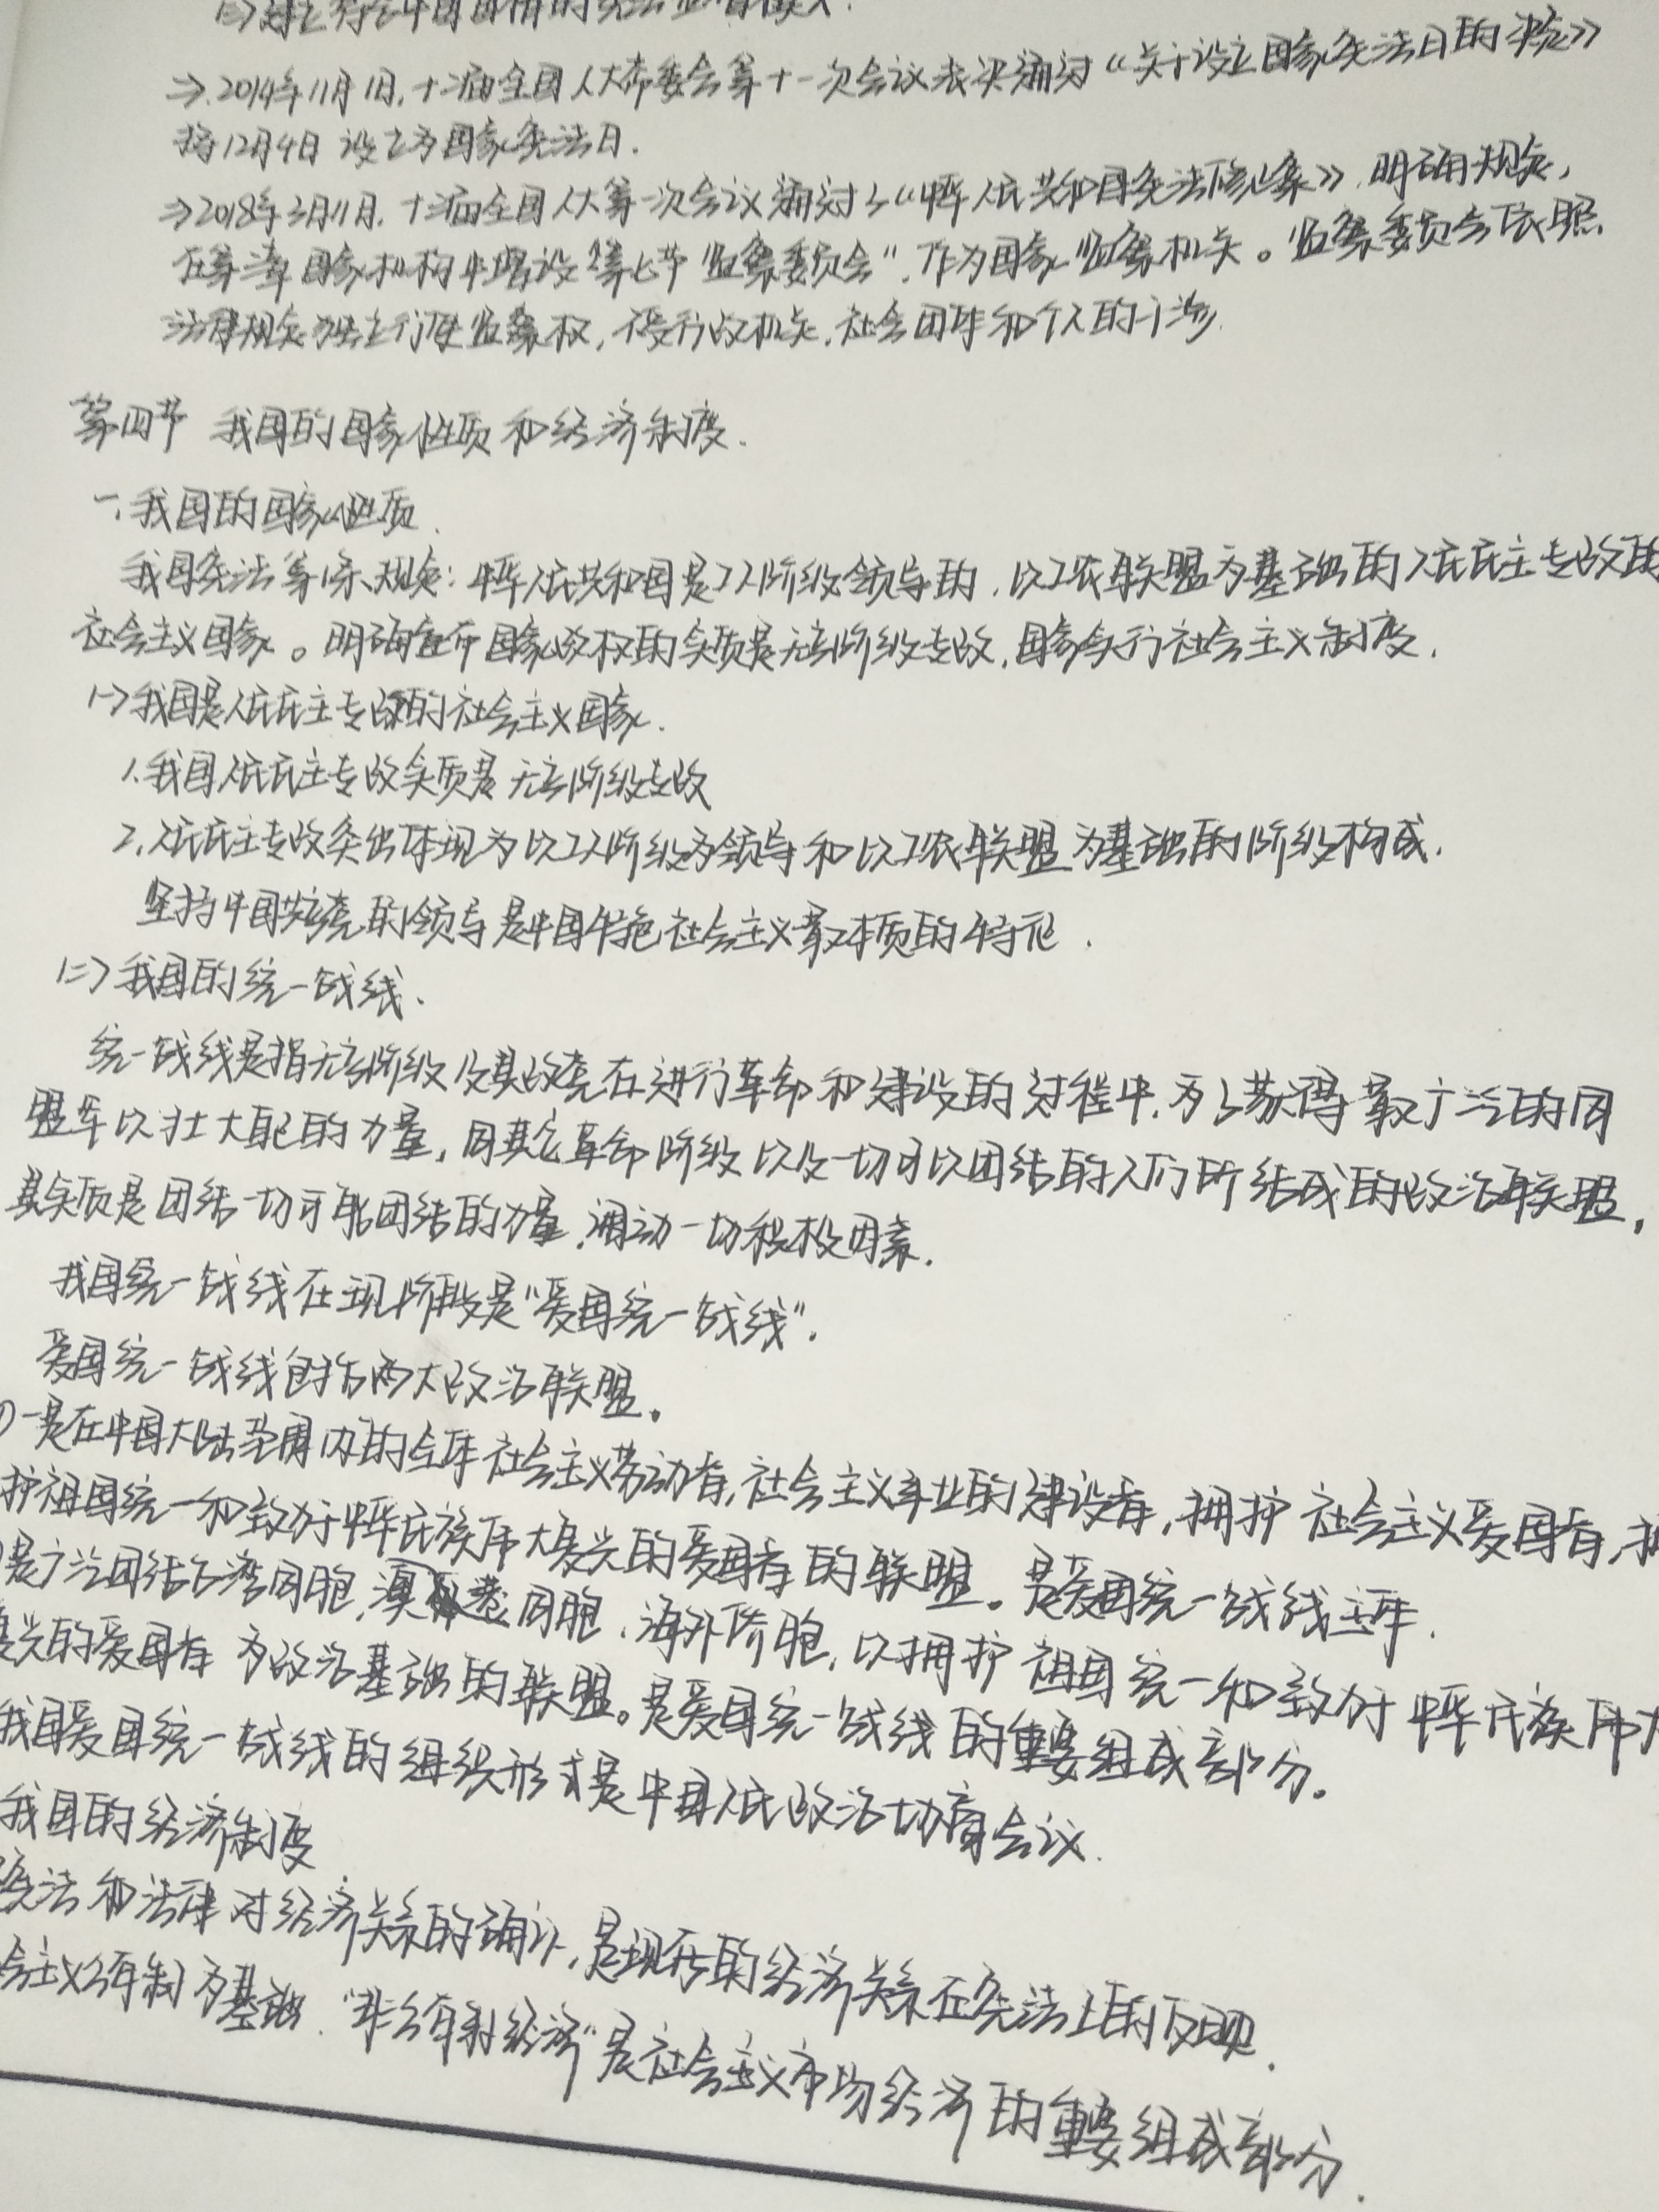 (三)建立符合中国国情的宪法监督模式.
⇒.2014年11月1日,十二届全国人大常委会第十一次会议表决通过《关于设立国家宪法日的决定》
将12月4日 设立为国家宪法日.
⇒2018年3月11日,十三届全国人大第一次会议通过了《中华人民共和国宪法修正案》,明确规定,
在第三章 国家机构中增设 第七节 "监察委员会",作为国家监察机关。监察委员会依照
法律规定独立行使监察权,不受行政机关,社会团体和个人的干涉.
第四节 我国的国家性质和经济制度.
一、我国的国家性质.
我国宪法第1条规定:中华人民共和国是工人阶级领导的,以工农联盟为基础的人民民主专政的
社会主义国家。明确宣布国家政权的实质是无产阶级专政,国家实行社会主义制度.
(一)我国是人民民主专政的社会主义国家.
1.我国人民民主专政实质是无产阶级专政
2.人民民主专政突出体现为以工人阶级为领导和以工农联盟为基础的阶级构成.
坚持中国共产党的领导是中国特色社会主义最本质的特征.
(二)我国的统一战线.
统一战线是指无产阶级及其政党在进行革命和建设的过程中,为了获得最广泛的同
盟军以壮大自己的力量,同其它革命阶级以及一切可以团结的人们所结成的政治联盟,
其实质是团结一切可能团结的力量,调动一切积极因素.
我国统一战线在现阶段是"爱国统一战线".
爱国统一战线包括两大政治联盟。
①一是在中国大陆范围内的全体社会主义劳动者,社会主义事业的建设者,拥护社会主义爱国者,拥
护祖国统一和致力于中华民族伟大复兴的爱国者的联盟。是爱国统一战线主体.
是广泛团结台湾同胞,港澳同胞,海外侨胞,以拥护祖国统一和致力于中华民族伟大
复兴的爱国者为政治基础的联盟。是爱国统一战线的重要组成部分.
我国爱国统一战线的组织形式是中国人民政治协商会议.
我国的经济制度
宪法和法律对经济关系的确认,是现存的经济关系在宪法上的反映.
会主义公有制为基础."非公有制经济"是社会主义市场经济的重要组成部分.